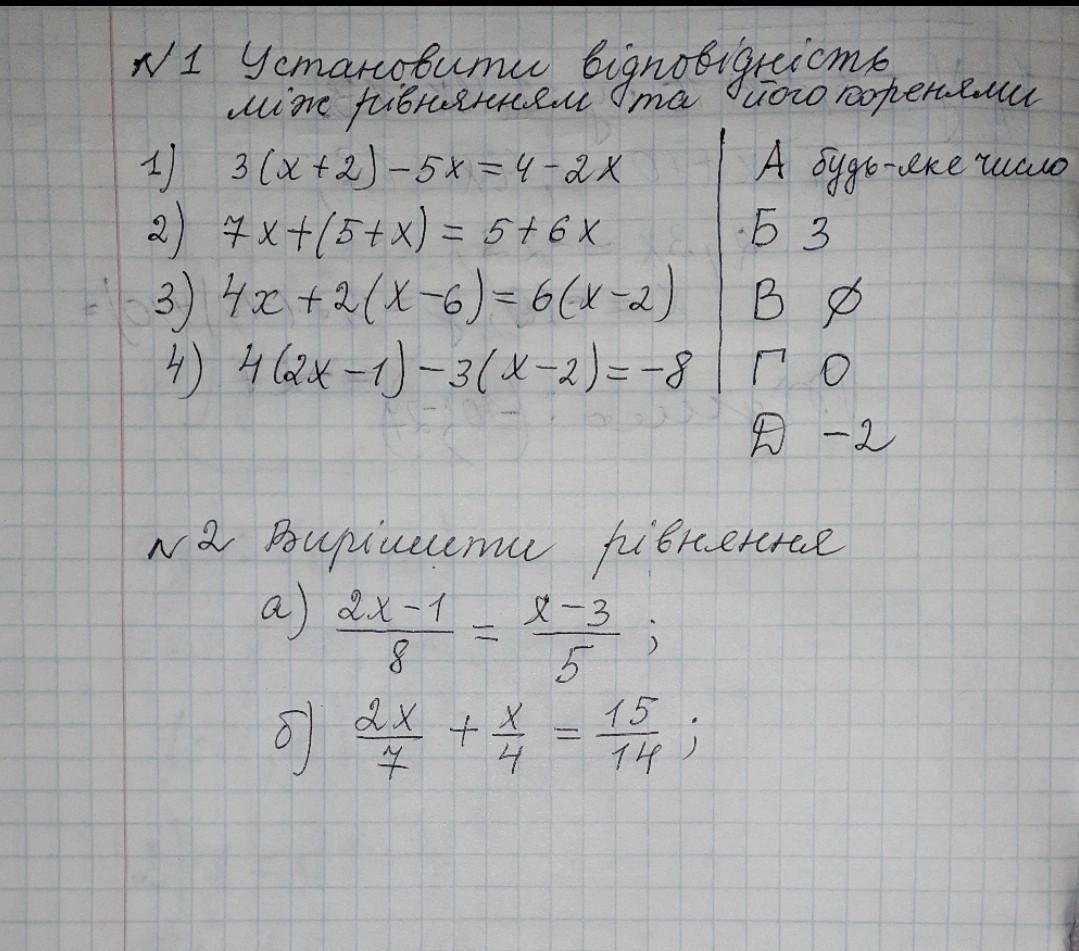 №1 Установити відповідність
між рівнянням та його коренями
1) 3(x+2)-5x=4-2x А будь-яке число
2) 7x+(5+x)=5+6x Б 3
3) 4x+2(x-6)=6(x-2) В ∅
4) 4(2x-1)-3(x-2)=-8 Г 0
Д -2
№2 Вирішити рівняння
а) (2x-1)/8 = (x-3)/5 ;
б) 2x/7 + x/4 = 15/14 ;